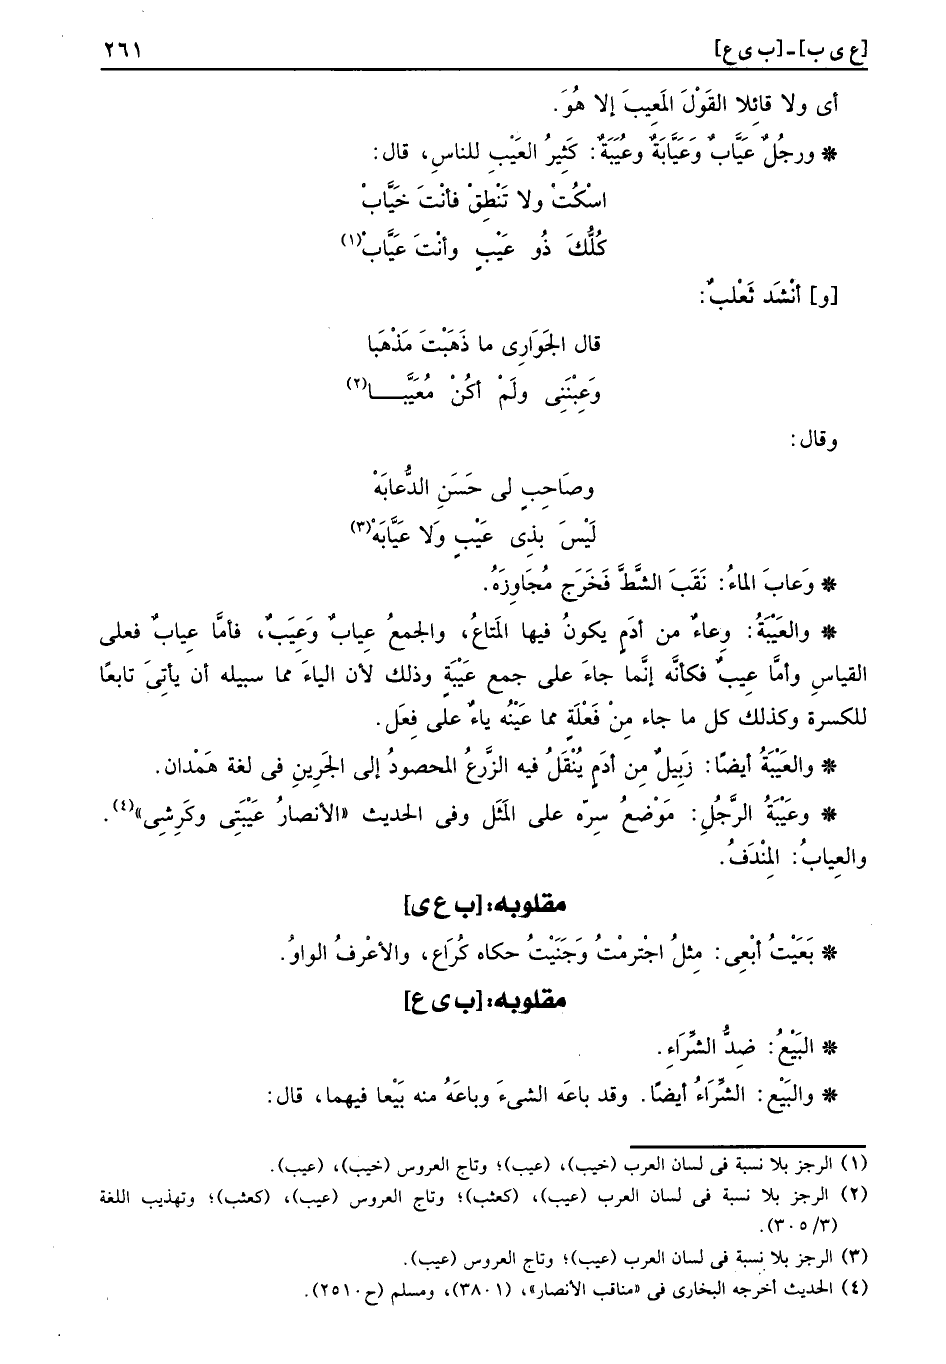 [ع ى ب] - [ب ى ع] ٢٦١
أى ولا قائلا القَوْلَ المَعِيبَ إلا هُوَ.
* ورجُلٌ عَيَّابٌ وعَيَّابَةٌ وعُيَبَةٌ: كَثِيرُ العَيْبِ للناسِ، قال:
اسْكُتْ ولا تَنْطِقْ فأنْتَ خَيَّابْ
كُلُّكَ ذُو عَيْبٍ وأنْتَ عَيَّابْ(١)
[و] أنْشَد ثَعْلبٌ:
قال الجَوَارِى ما ذَهَبْتَ مَذْهَبا
وَعِبْنَنِى ولَمْ أكُنْ مُعَيَّبـــا(٢)
وقال:
وصَاحِبٍ لى حَسَنِ الدُّعابَهْ
لَيْسَ بذِى عَيْبٍ ولَا عَيَّابَهْ(٣)
* وَعابَ الماءُ: نَقَبَ الشَّطَّ فَخَرَج مُجَاوِزَهُ.
* والعَيْبَةُ: وِعاءٌ من أدَمٍ يكونُ فيها المَتَاعُ، والجمعُ عِيابٌ وَعِيَبٌ، فأمَّا عِيابٌ فعلى
القياسِ وأمَّا عِيبٌ فكأنَّه إنَّما جاءَ على جمع عَيْبَةٍ وذلك لأن الياءَ مما سبيله أن يأتىَ تابعًا
للكسرة وكذلك كل ما جاء مِنْ فَعْلَةٍ مما عَيْنُه ياءٌ على فِعَل.
* والعَيْبَةُ أيضًا: زَبِيلٌ مِن أدَمٍ يُنْقَلُ فيه الزَّرعُ المحصودُ إلى الجَرِينِ فى لغة هَمْدان.
* وعَيْبَةُ الرَّجُلِ: مَوْضعُ سِرّه على المَثَل وفى الحديث «الأنصارُ عَيْبَتِى وكَرِشِى»(٤).
والعِيابُ: المِنْدَفُ.
مقلوبه: [ب ع ى]
* بَعَيْتُ أبْعِى: مِثلُ اجْترمْتُ وَجَنَيْتُ حكاه كُرَاع، والأعْرفُ الواوُ.
مقلوبه: [ب ى ع]
* البَيْعُ: ضِدُّ الشِّرَاءِ.
* والبَيْع: الشِّرَاءُ أيضًا. وقد باعَه الشىءَ وباعَهُ منه بَيْعا فيهما، قال:
(١) الرجز بلا نسبة فى لسان العرب (خيب)، (عيب)؛ وتاج العروس (خيب)، (عيب).
(٢) الرجز بلا نسبة فى لسان العرب (عيب)، (كعثب)؛ وتاج العروس (عيب)، (كعثب)؛ وتهذيب اللغة
(٣/ ٣٠٥).
(٣) الرجز بلا نسبة فى لسان العرب (عيب)؛ وتاج العروس (عيب).
(٤) الحديث أخرجه البخارى فى «مناقب الأنصار»، (٣٨٠١)، ومسلم (ح٢٥١٠).